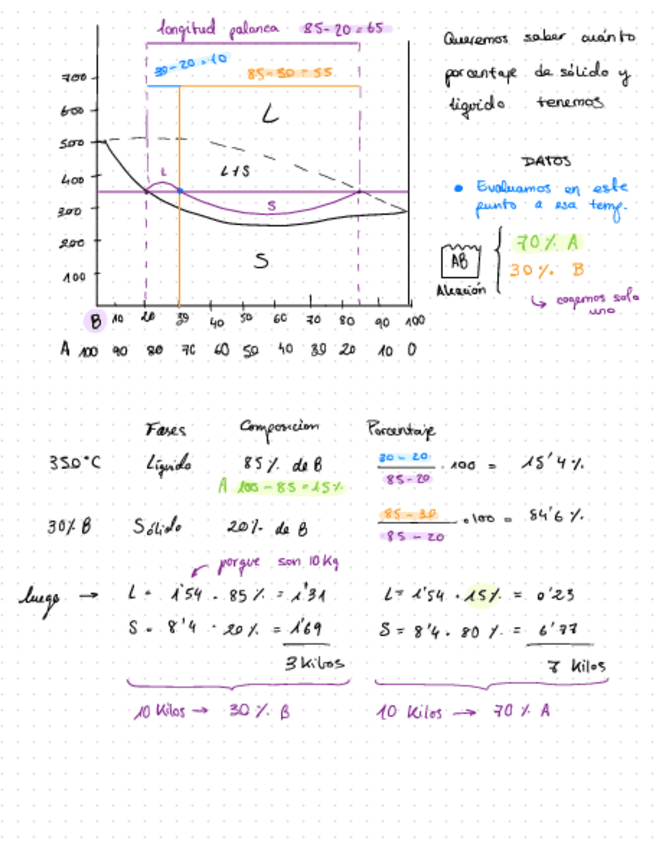 longitud palanca 85-20=65
30-20=10
85-30=55
700
600
500
400
300
200
100
L
L+S
L
S
S
B 10 20 30 40 50 60 70 80 90 100
A 100 90 80 70 60 50 40 30 20 10 0
Queremos saber cuánto
porcentaje de sólido y
líquido tenemos
DATOS
• Evaluamos en este
punto a esa temp.
AB
Aleación
70% A
30% B
↳ cogemos solo
uno
Fases Composición Porcentaje
350°C Líquido 85% de B 30-20 / 85-20 · 100 = 15'4%
A 100-85=15%
30% B Sólido 20% de B 85-30 / 85-20 · 100 = 84'6%
porque son 10Kg
luego → L = 1'54 · 85% = 1'31 L = 1'54 · 15% = 0'23
S = 8'4 · 20% = 1'69 S = 8'4 · 80% = 6'77
3 Kilos 7 Kilos
10 Kilos → 30% B 10 Kilos → 70% A